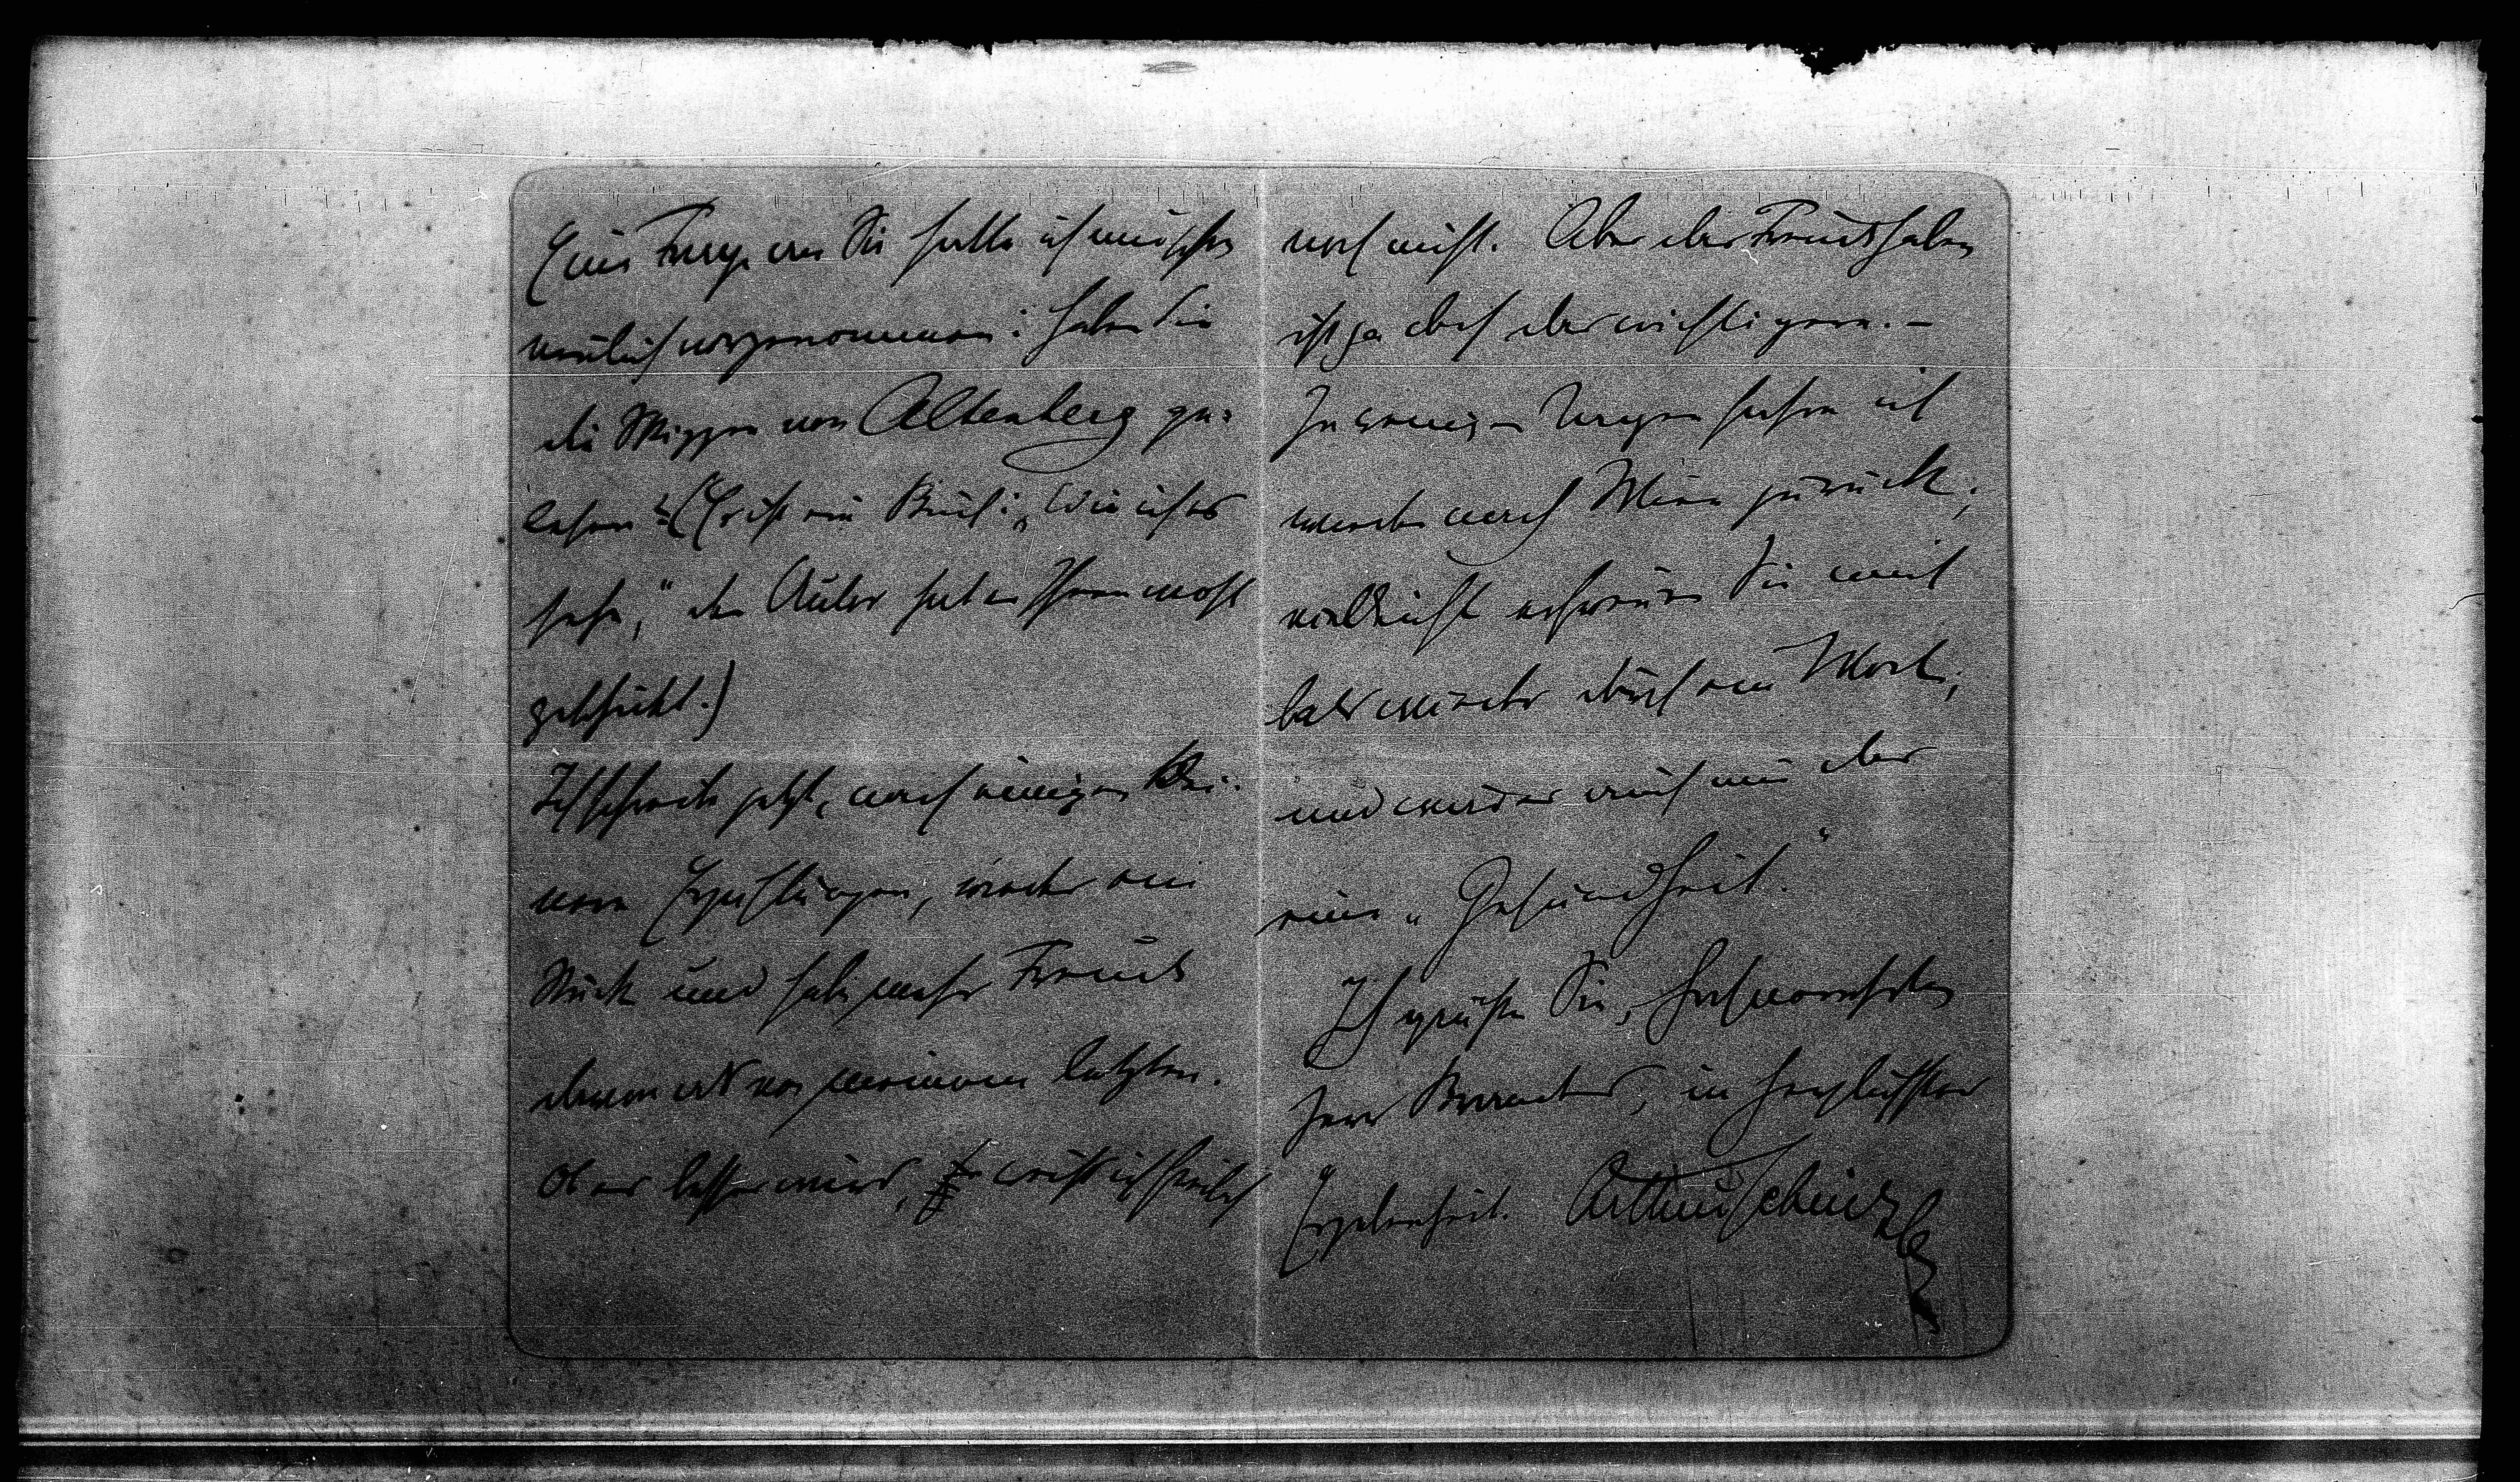 Eine Frage an Sie hatte ich mir schon
neulich vorgenommen: haben Sie
die Skizzen von Altenberg ge-
lesen? (Es ist ein Buch: „Wie ich es
sehe,“ der Autor hat es Ihnen wohl
geschickt.)
Ich schreibe jetzt, nach einigen klei-
nern Erzählungen, wieder ein
Stück und habe mehr Freude
daran als von meinem letzten.
Ob es besser wird, weiß ich freilich
noch nicht. Aber das Freude haben
ist ja doch das wichtigere. –
In wenigen Tagen fahre ich
wieder nach Wien zurück;
vielleicht erfreuen Sie mich
bald wieder durch ein Wort;
und wäre es auch nur das
eine „Gesundheit.“
Ich grüße Sie, hochverehrter
Herr Brandes, in herzlichster
Ergebenheit. Arthur Schnitzler